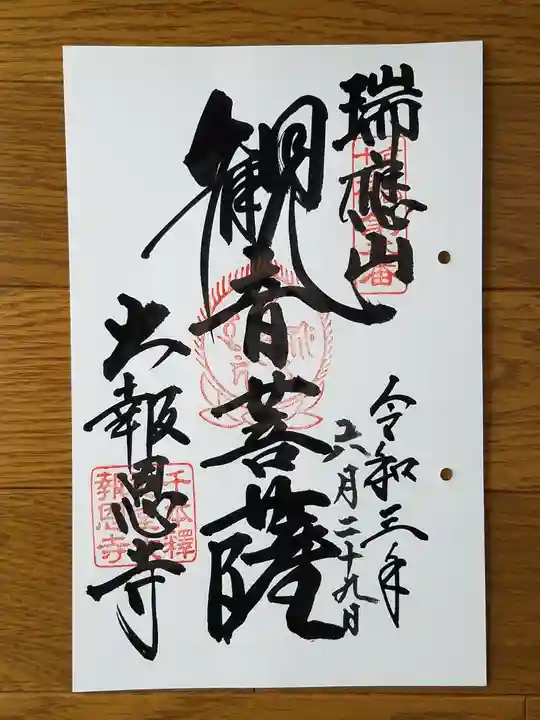 瑞應山
令和三年
六月二十九日
観音菩薩
大報恩寺
千本釋
報恩寺